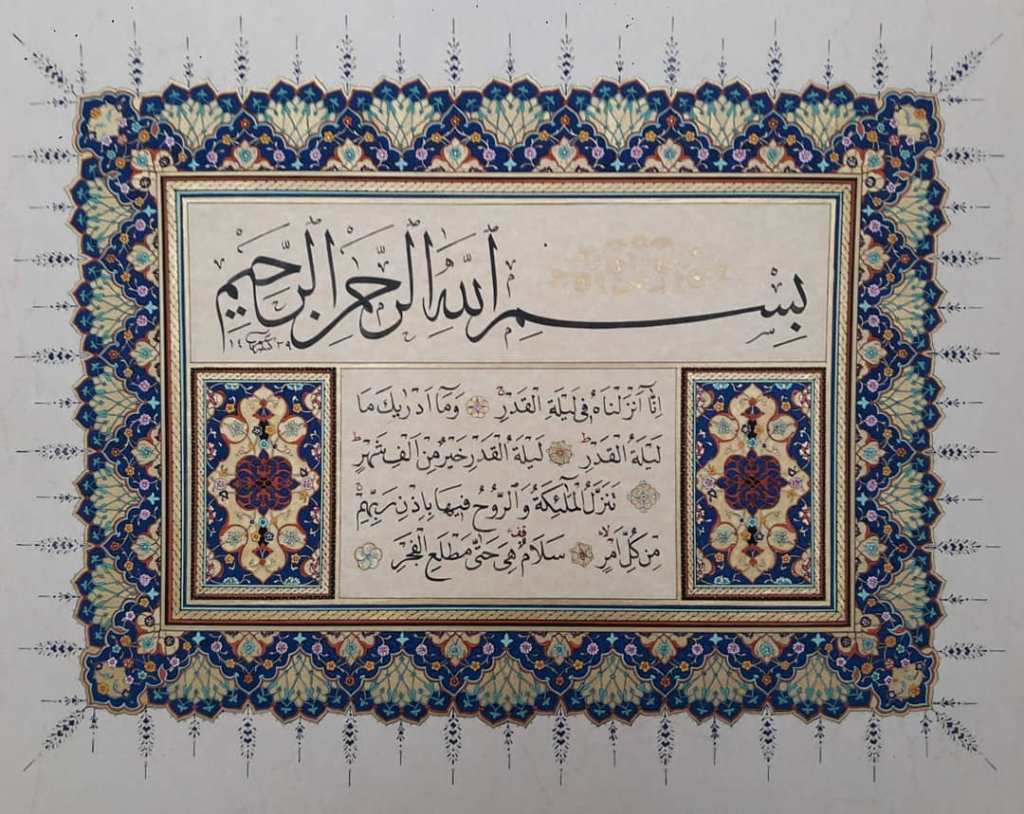 بِسْمِ ٱللَّهِ الرَّحْمٰنِ الرَّحِيمِ
١٤٣٩
اِنَّٓا اَنْزَلْنَاهُ فِى لَيْلَةِ الْقَدْرِ وَمَٓا اَدْرٰيكَ مَا
لَيْلَةُ الْقَدْرِ لَيْلَةُ الْقَدْرِ خَيْرٌ مِنْ اَلْفِ شَهْرٍ
تَنَزَّلُ الْمَلٰٓئِكَةُ وَالرُّوحُ فِيهَا بِاِذْنِ رَبِّهِمْ
مِنْ كُلِّ اَمْرٍ سَلَامٌ هِىَ حَتّٰى مَطْلَعِ الْفَجْرِ